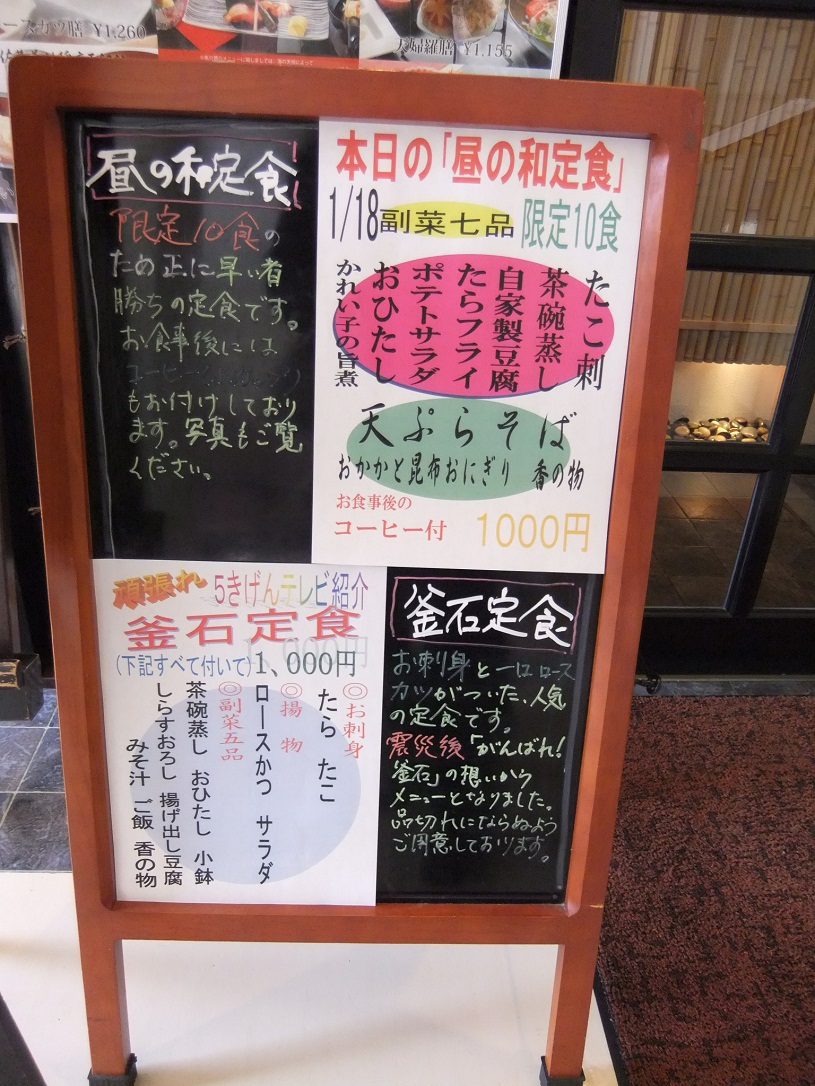 ースカツ膳 ¥1,260
天婦羅膳 ¥1,155
昼の和定食
限定10食の
ため正に早い者
勝ちの定食です。
お食事後には
コーヒー
もお付けしており
ます。写真もご覧
ください。
本日の「昼の和定食」
1/18 副菜七品 限定10食
たこ刺
茶碗蒸し
自家製豆腐
たらフライ
ポテトサラダ
おひたし
かれい子の旨煮
天ぷらそば
おかかと昆布おにぎり 香の物
お食事後の
コーヒー付 1000円
頑張れ 5きげんテレビ紹介
釜石定食
(下記すべて付いて)1、000円
◎お刺身
たら たこ
◎揚 物
ロースかつ サラダ
◎副菜五品
茶碗蒸し おひたし 小鉢
しらすおろし 揚げ出し豆腐
みそ汁 ご飯 香の物
釜石定食
お刺身と一口ロース
カツがついた、人気
の定食です。
震災後「がんばれ!
釜石」の想いから
メニューとなりました。
品切れにならぬよう
ご用意しております。